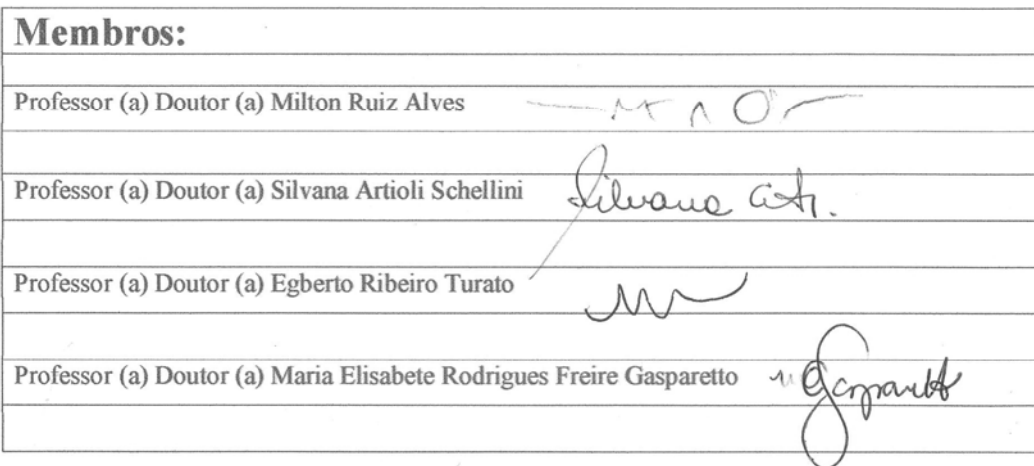 Membros:
Professor (a) Doutor (a) Milton Ruiz Alves
Professor (a) Doutor (a) Silvana Artioli Schellini Silvana
Professor (a) Doutor (a) Egberto Ribeiro Turato
Professor (a) Doutor (a) Maria Elisabete Rodrigues Freire Gasparetto Gasparetto